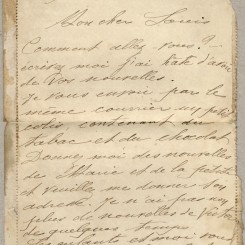 Mon cher Louis
Comment allez vous? -
écrivez moi j'ai hâte d'avoir
de vos nouvelles.
Je vous envoie par le
même courrier un petit
colis contenant du
tabac et du chocolat
Donnez moi des nouvelles
de Marie et de la petite
et veuillez me donner son
adresse. Je n'ai pas eu
plus de nouvelles de
depuis quelques temps
enfants et moi vous